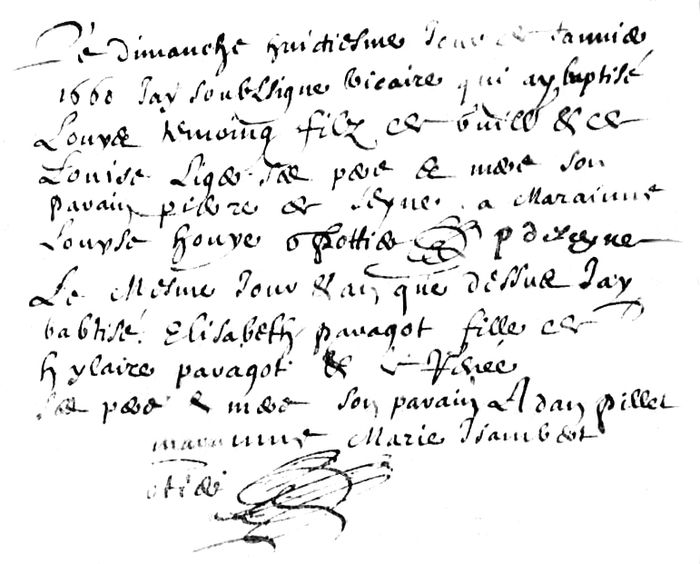 Le dimanche huictiesme Jour de Januie
1660 Jay soubsigne vicaire qui ay baptisé
Louys temoing filz de & de
Louise ses pere & mere son
parain pierre de Seyne a Maraine
Louyse houye
Le Mesme Jour & an que dessus Jay
babtisé Elisabeth paragot fille de
hylaire paragot & de Renée
ses pere & mere son parain Adan pillet
maraine Marie Isambert